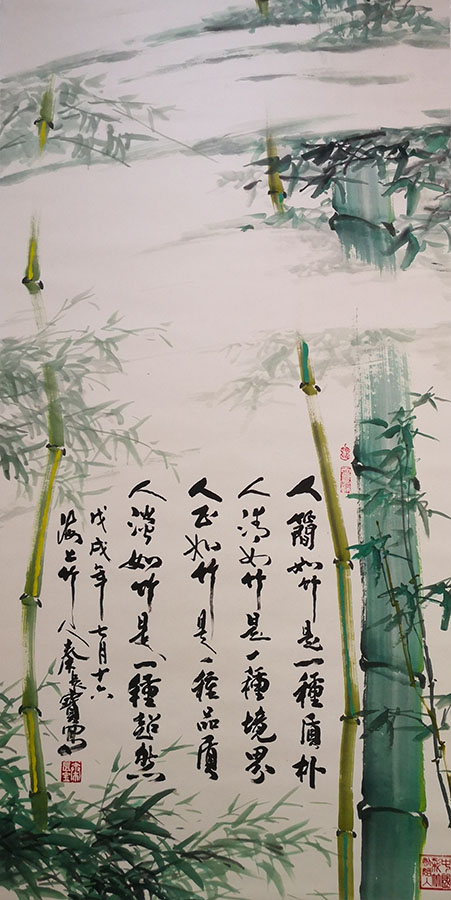 人簡如竹是一種质朴
人清如竹是一種境界
人正如竹是一種品质
人淡如竹是一種超然
戊戌年七月十六
海上竹人秦長寶寫